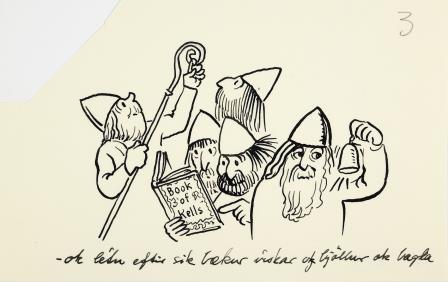 3
Book
of
Kells
- ok létu eftir sik bækur írskar ok bjöllur ok bagla